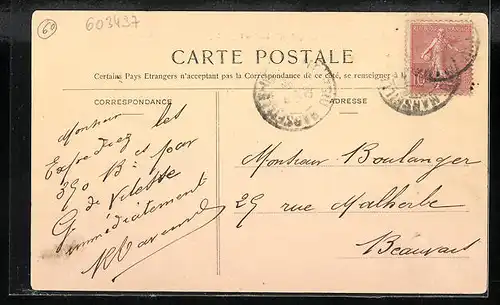 60
603437
CARTE POSTALE
Certains Pays Etrangers n'acceptant pas la Correspondance de ce côté, se renseigner à la
CORRESPONDANCE
ADRESSE
Monsieur
Expédiez les
390 Bls et par
G de Vitesse
immédiatement
Monsieur Boulanger
29 rue Malherbe
Beauvais
MARSEILLE
MARSEILLE